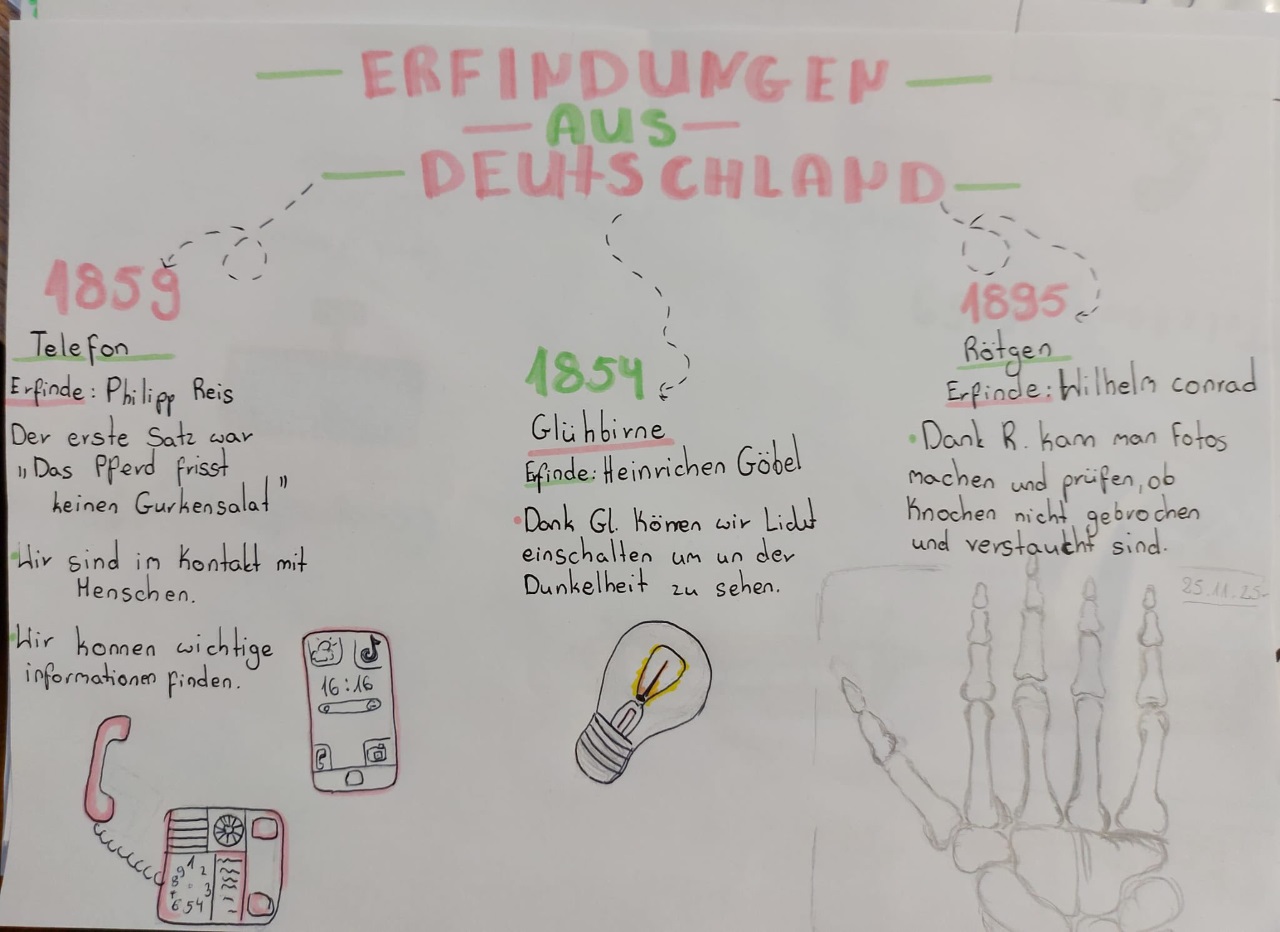 ERFINDUNGEN
AUS
DEUtSCHLAND
1859
Telefon
Erfinde: Philipp Reis
Der erste Satz war
"Das Pferd frisst
keinen Gurkensalat"
• Wir sind im Kontakt mit
Menschen.
• Wir konnen wichtige
informationen finden.
16:16
9 1 2
8 3
7
6 5 4
1854
Glühbirne
Efinde: Heinrichen Göbel
• Dank Gl. Können wir Licht
einschalten um un der
Dunkelheit zu sehen.
1895
Rötgen
Erfinde: Wilhelm conrad
• Dank R. kann man Fotos
machen und prüfen, ob
Knochen nicht gebrochen
und verstaucht sind.
25.11.25